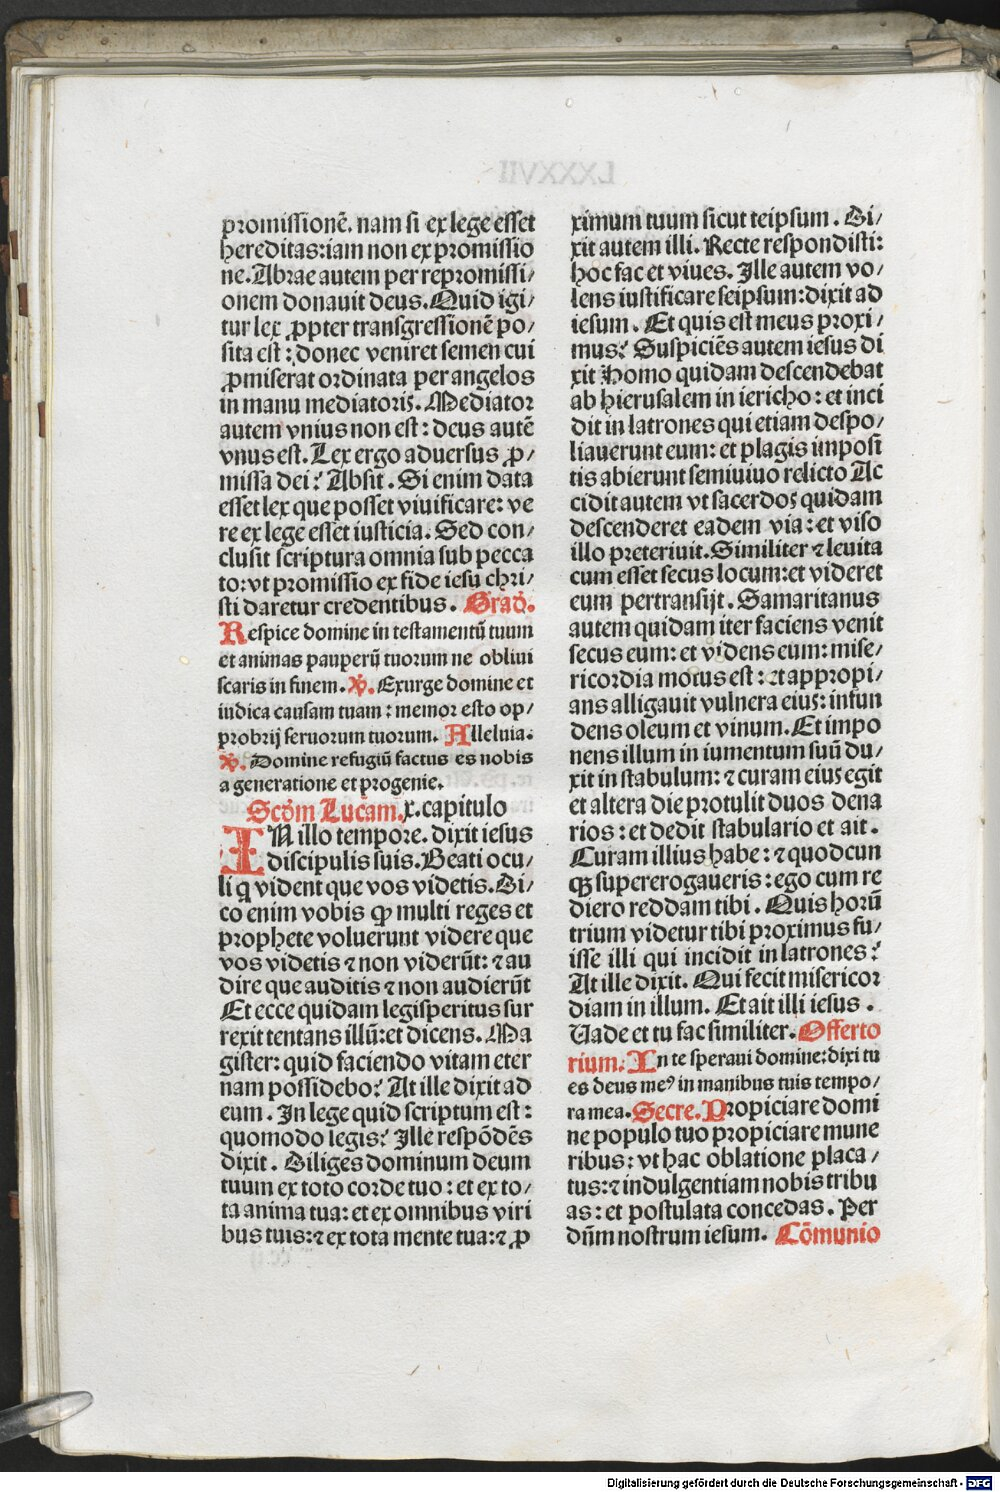 promissionē. nam si ex lege esset
hereditas: iam non ex promissio
ne. Abrae autem per repromissi/
onem donauit deus. Quid igi/
tur lex ꝓpter transgressionē po/
sita est: donec veniret semen cui
ꝓmiserat ordinata per angelos
in manu mediatoris. Mediator
autem vnius non est: deus autē
vnus est. Lex ergo aduersus ꝓ/
missa dei? Absit. Si enim data
esset lex que posset viuificare: ve
re ex lege esset iusticia. Sed con/
clusit scriptura omnia sub pecca
to: vt promissio ex fide iesu chri/
sti daretur credentibus. Grad.
Respice domine in testamentū tuum
et animas pauperū tuorum ne obliui
scaris in finem. ℣. Exurge domine et
iudica causam tuam: memor esto op/
probrij seruorum tuorum. Alleluia.
℣. Domine refugiū factus es nobis
a generatione et progenie.
Scďm Lucam. x. capitulo
IN illo tempore. dixit iesus
discipulis suis. Beati ocu/
li q̄ vident que vos videtis. Di/
co enim vobis ꝙ multi reges et
prophete voluerunt videre que
vos videtis ⁊ non viderūt: ⁊ au
dire que auditis ⁊ non audierūt
Et ecce quidam legisperitus sur
rexit tentans illū: et dicens. Ma
gister: quid faciendo vitam eter
nam possidebo? At ille dixit ad
eum. In lege quid scriptum est:
quomodo legis? Ille respōdēs
dixit. Diliges dominum deum
tuum ex toto corde tuo: et ex to/
ta anima tua: et ex omnibus viri
bus tuis: ⁊ ex tota mente tua: ⁊ ꝓ
ximum tuum sicut teipsum. Di/
xit autem illi. Recte respondisti:
hoc fac et viues. Ille autem vo/
lens iustificare seipsum: dixit ad
iesum. Et quis est meus proxi/
mus? Suspiciēs autem iesus di
xit Homo quidam descendebat
ab hierusalem in iericho: et inci
dit in latrones qui etiam despo/
liauerunt eum: et plagis imposi
tis abierunt semiuiuo relicto Ac
cidit autem vt sacerdos quidam
descenderet eadem via: et viso
illo preteriuit. Similiter ⁊ leuita
cum esset secus locum: et videret
eum pertransijt. Samaritanus
autem quidam iter faciens venit
secus eum: et videns eum: mise/
ricordia motus est: et appropi/
ans alligauit vulnera eius: infun
dens oleum et vinum. Et impo
nens illum in iumentum suū du/
xit in stabulum: ⁊ curam eius egit
et altera die protulit duos dena
rios: et dedit stabulario et ait.
Curam illius habe: ⁊ quodcun
qꝫ supererogaueris: ego cum re
diero reddam tibi. Quis horū
trium videtur tibi proximus fu/
isse illi qui incidit in latrones?
At ille dixit. Qui fecit misericor
diam in illum. Et ait illi iesus.
Uade et tu fac similiter. Offerto
rium. In te speraui domine: dixi tu
es deus meꝰ in manibus tuis tempo/
ra mea. Secre. Propiciare domi
ne populo tuo propiciare mune
ribus: vt hac oblatione placa/
tus: ⁊ indulgentiam nobis tribu
as: et postulata concedas. Per
dn̄m nostrum iesum. Cōmunio
Digitalisierung gefördert durch die Deutsche Forschungsgemeinschaft - DFG